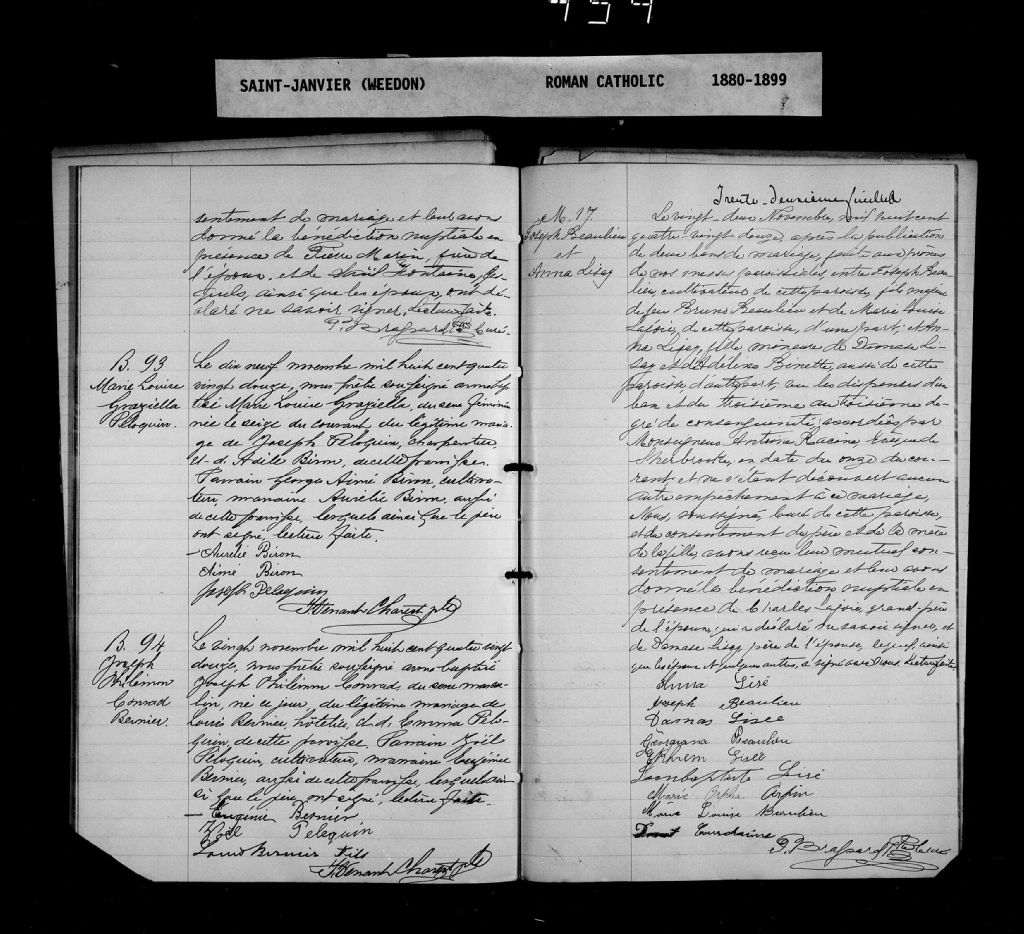 SAINT-JANVIER (WEEDON) ROMAN CATHOLIC 1880-1899
sentement de mariage et leur avons
donné la bénédiction nuptiale en
présence de Pierre Marin, père de
l'époux, et de Fontaine, les-
quels, ainsi que les époux, ont dé-
claré ne savoir signer. Lecture faite.
P. Brassard Ptre Curé.
B. 93
Marie Louise
Graziella
Peloquin.
Le dix neuf novembre mil huit cent quatre
vingt douze, nous prêtre soussigné avons bap-
tisé Marie Louise Graziella, du sexe féminin
née le seize du courant du légitime maria-
ge de Joseph Péloquin, charpentier
et d'Adèle Biron, de cette paroisse.
Parrain George Aimé Biron, cultiva-
teur, marraine Aurélie Biron, aussi
de cette paroisse, lesquels ainsi que le père
ont signé, lecture faite.
Aurélie Biron
Aimé Biron
Joseph Peloquin
J. Venant Charest ptre
B. 94
Joseph
Philémon
Conrad
Bernier.
Le vingt novembre mil huit cent quatre vingt
douze, nous prêtre soussigné avons baptisé
Joseph Philémon Conrad, du sexe mascu-
lin, né ce jour, du légitime mariage de
Louis Bernier hôtelier, et d'Emma Pélo-
quin, de cette paroisse. Parrain Joël
Péloquin, cultivateur, marraine Eugénie
Bernier, aussi de cette paroisse, lesquels ain-
si que le père, ont signé, lecture faite.
Eugénie Bernier
Joël Peloquin
Louis Bernier fils
J. Venant Charest ptre
Trente-deuxième feuillet
M. 17
Joseph Beaulieu
et
Anna Lisey
Le vingt-deux Novembre, mil huit cent
quatre-vingt douze, après la publication
de deux bans de mariage, faite aux prônes
de nos messes paroissiales, entre Joseph Beau-
lieu, cultivateur de cette paroisse, fils majeur
de feu Bruno Beaulieu et de Marie Louise
Lajoie, de cette paroisse, d'une part; et An-
na Lisey, fille mineure de Damase Li-
sey et d'Adéline Binette, aussi de cette
paroisse d'autre part; vu les dispenses d'un
ban et du troisième au troisième de-
gré de consanguinité, accordées par
Monseigneur Antoine Racine Evêque de
Sherbrooke, en date du onze du cou-
rant et ne s'étant découvert aucun
autre empêchement à ce mariage,
Nous, soussigné, curé de cette paroisse,
et du consentement du père et de la mère
de la fille, avons reçu leur mutuel con-
sentement de mariage et leur avons
donné la bénédiction nuptiale en
présence de Charles Lajoie, grand-père
de l'époux qui a déclaré ne savoir signer, et
de Damase Lisey père de l'épouse, lequel ainsi
que les époux et quelques autres, a signé avec Nous. Lecture faite
Anna Lisé
Joseph Beaulieu
Damas Lisee
Georgiana Beaulieu
Ephrem Liseé
Jeanbaptiste Lisé
Marie Orpha Arpin
Marie Louise Beaulieu
P. Brassard Ptre Curé